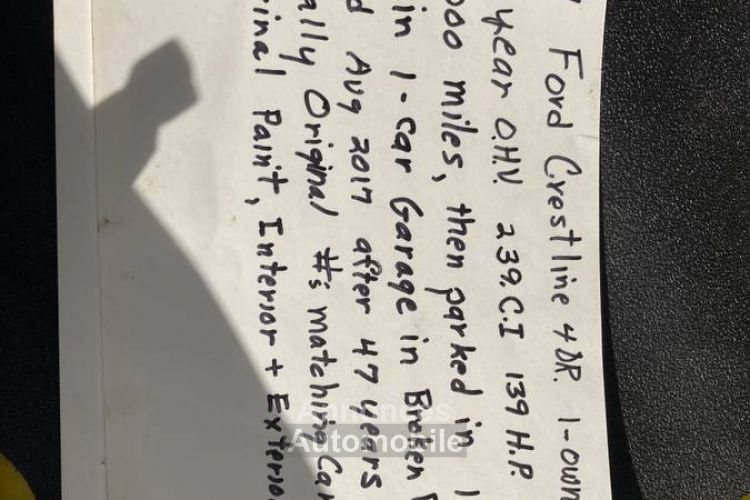 Ford Crestline 4 DR. 1-own
year O.H.V. 239.C.I 139 H.P.
000 miles, then parked in 1
in 1-car Garage in Broken
d Aug 2017 after 47 years
ally Original #'s matching Car
ginal Paint, Interior + Exterio
Annonces
Automobile